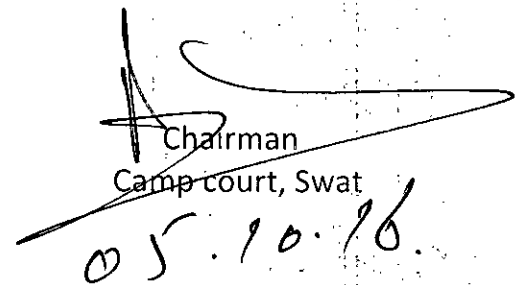 Chairman
Camp court, Swat
05.10.16.